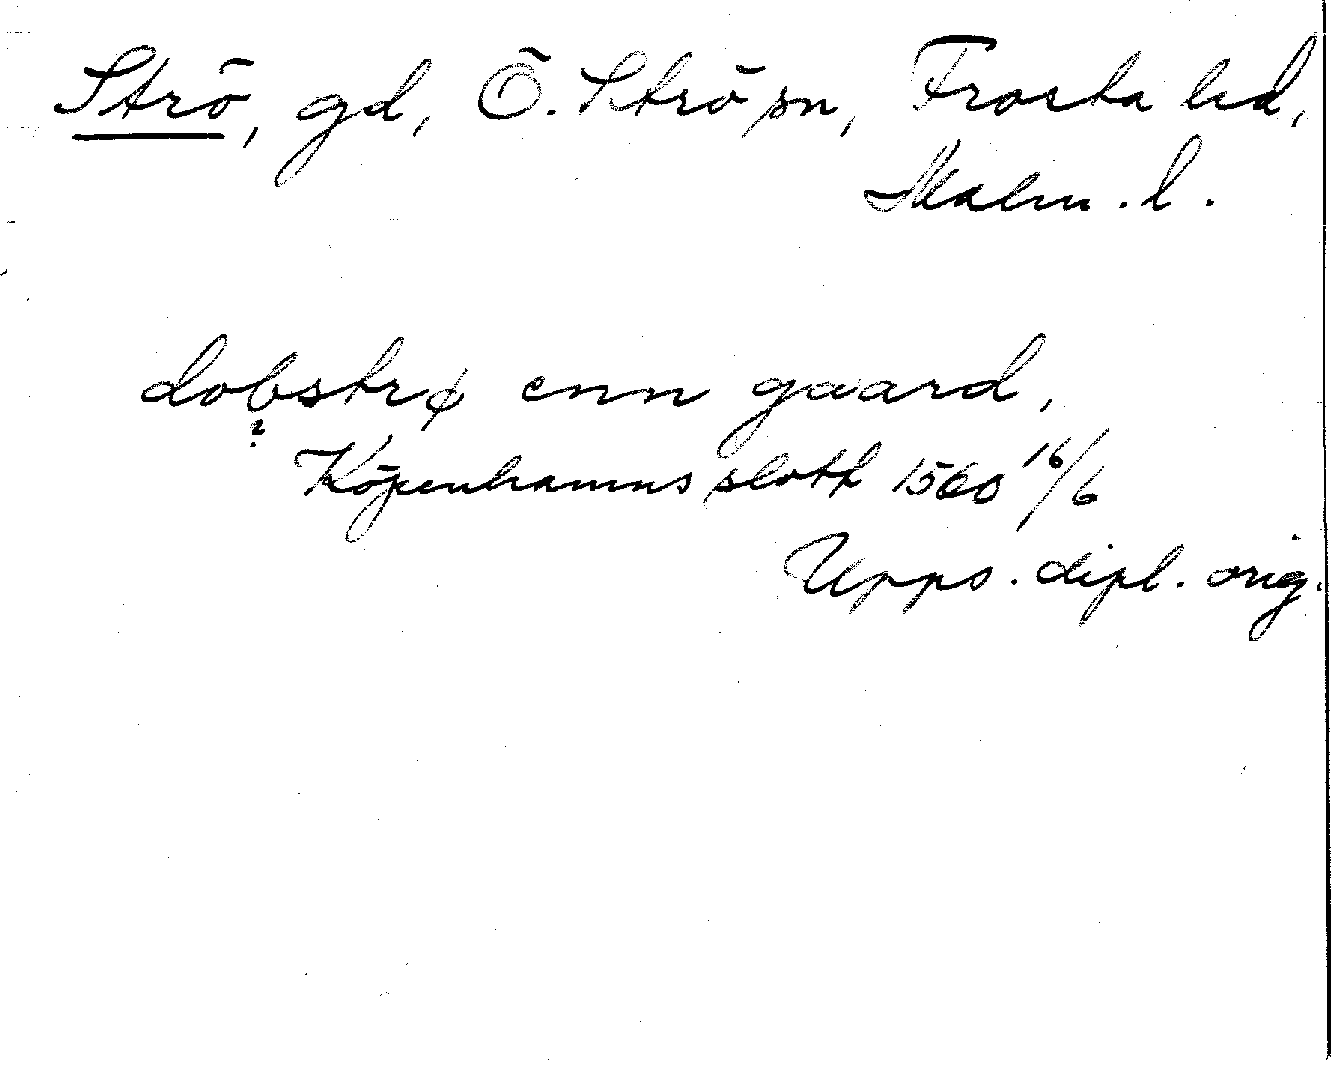 Strö, gd, Ö. Strö sn, Frosta hd,
Malm. l.
dobstrø enn gaard,
?
Köpenhamns sloth 1560 16/6
Upps. dipl. orig.